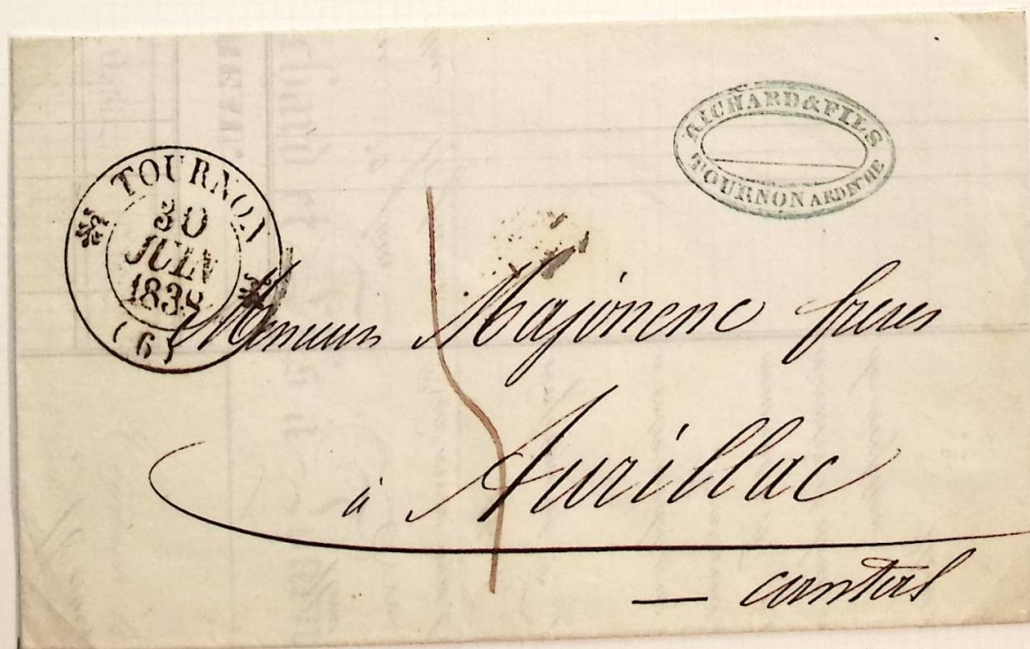 TOURNON
30
JUIN
1838
(6)
& FILS
TOURNON ARDECHE
Messieurs Majonenc freres
à Aurillac
— cantal